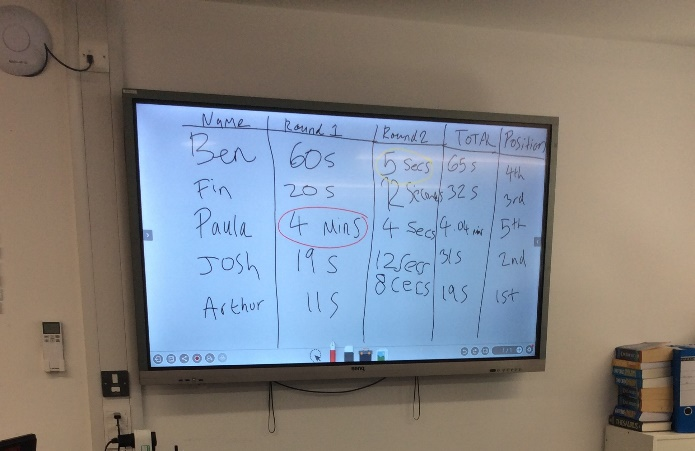 Name Round 1 Round 2 TOTAL Position
Ben 60s 5 secs 65s 4th
Fin 20s 12 seconds 32s 3rd
Paula 4 Mins 4 Secs 4.04 min 5th
Josh 19s 12secs 31s 2nd
Arthur 11s 8cecs 19s 1st
BENQ
THESAURUS